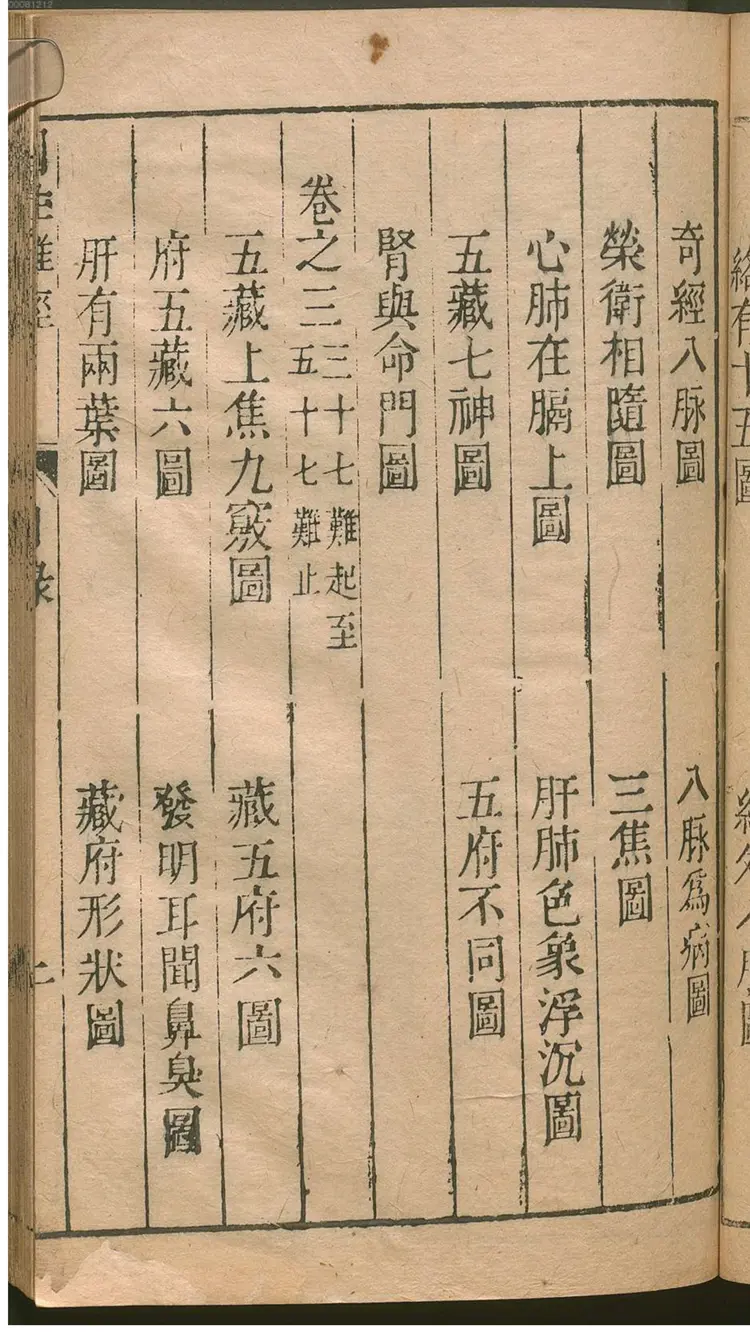 00081212
絡有十五圖
奇經八脉圖
八脉爲病圖
榮衛相隨圖
三焦圖
心肺在膈上圖
肝肺色象浮沉圖
五藏七神圖
五府不同圖
腎與命門圖
卷之三
三十七難起至
五十七難止
五藏上焦九竅圖
藏五府六圖
府五藏六圖
發明耳聞鼻臭圖
肝有兩葉圖
藏府形狀圖
難經
目錄